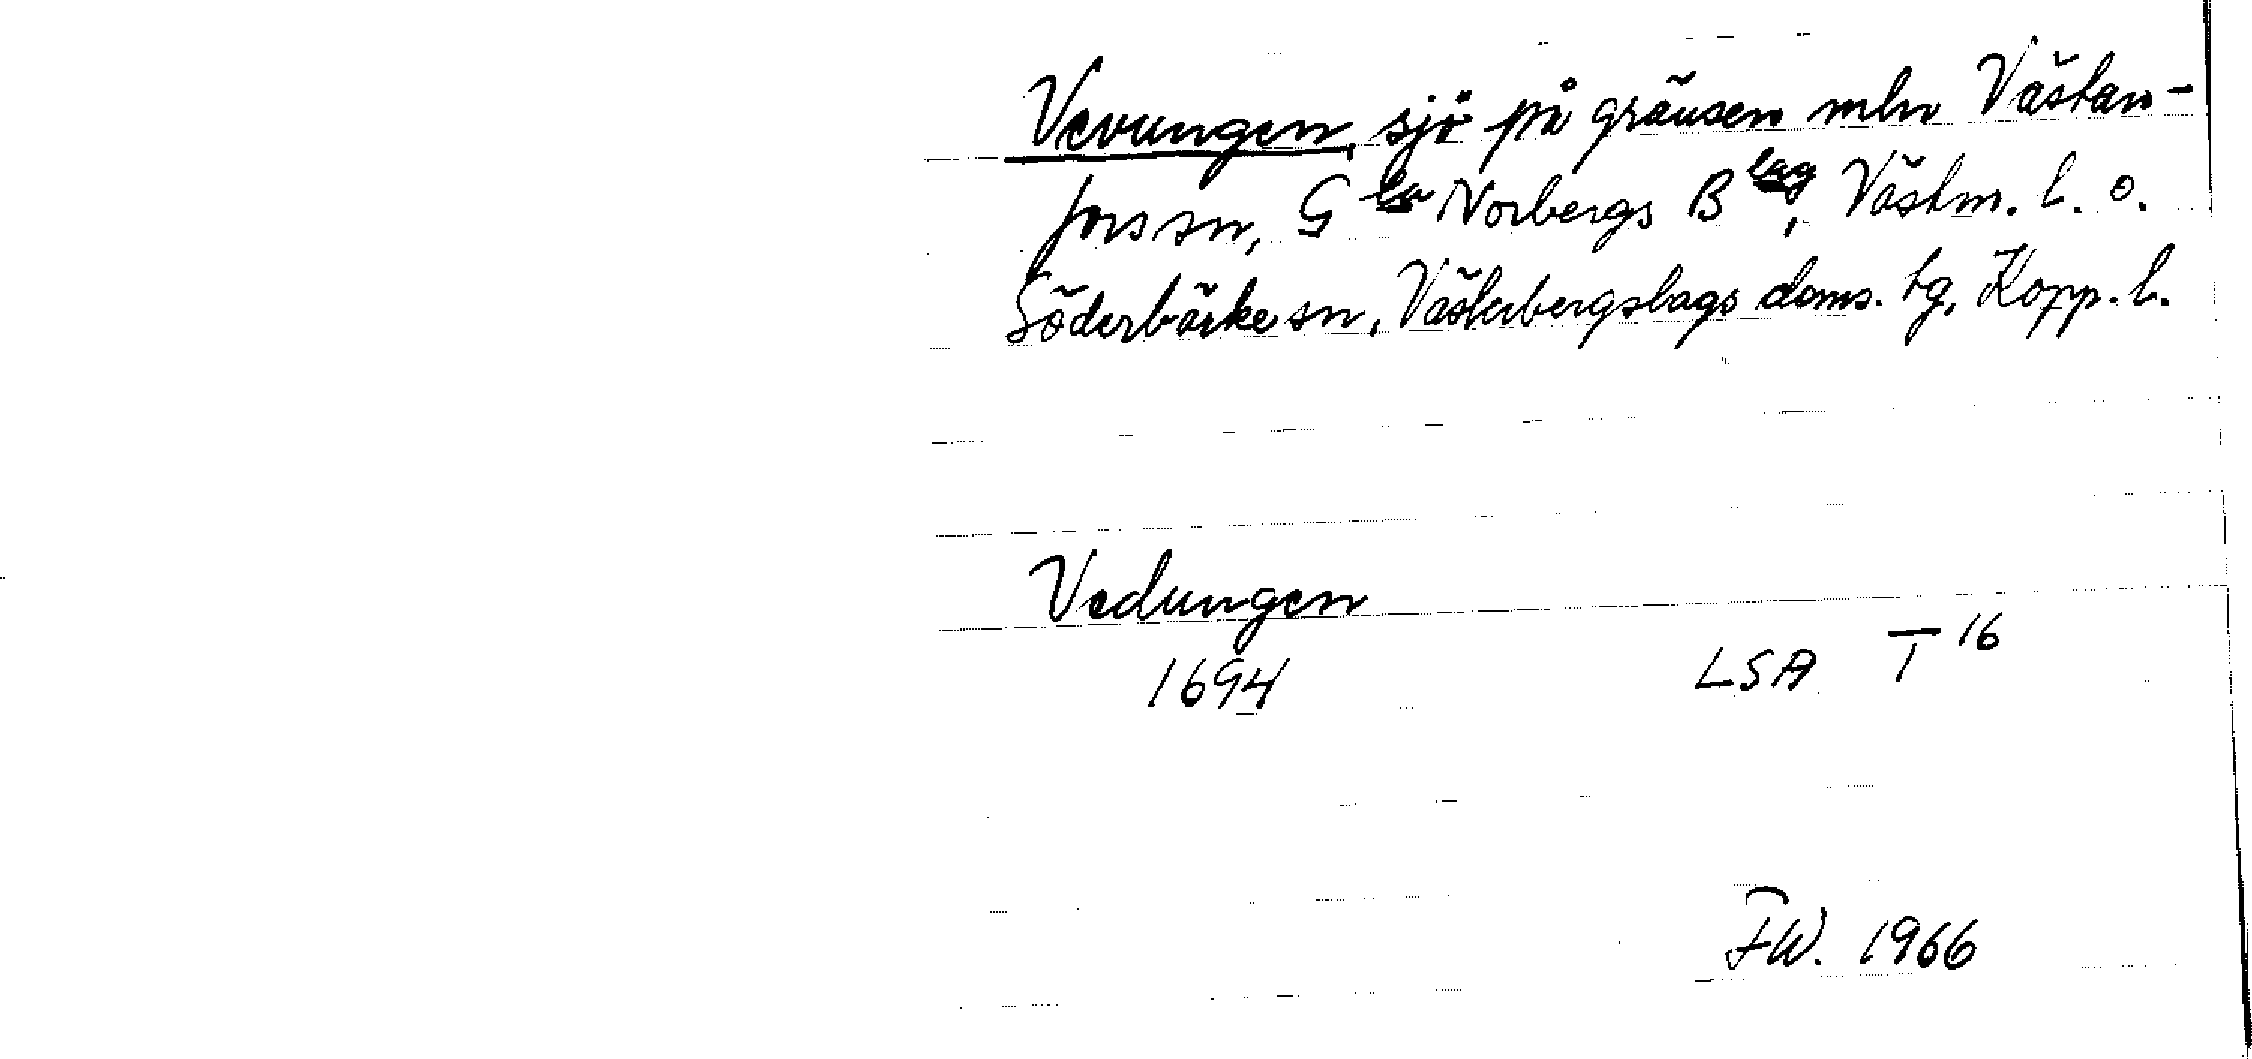 Vevungen, sjö på gränsen mln Västan-
fors sn, Gla Norbergs Blag, Västm. l. o.
Söderbärke sn, Västerbergslags doms. tg, Kopp. l.
Vedungen
1694 LSA T 16
FW. 1966